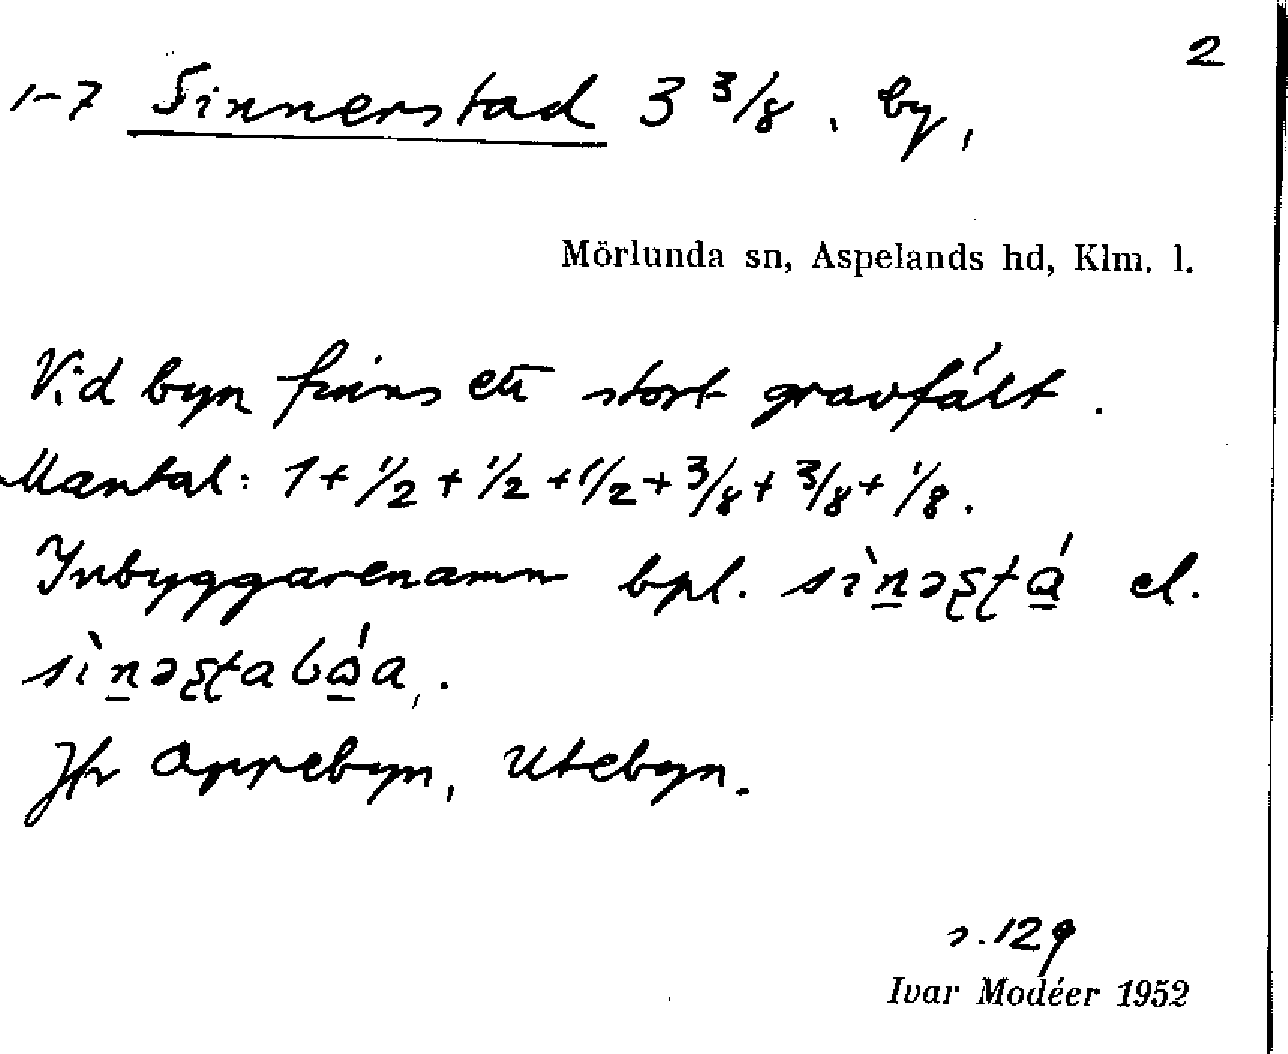 2
1-7 Sinnerstad 3 3/8, by,
Mörlunda sn, Aspelands hd, Klm. l.
Vid byn finns ett stort gravfält.
Mantal: 1 + 1/2 + 1/2 + 1/2 + 3/8 + 3/8 + 1/8.
Inbyggarenamn bpl. el.
Jfr Oppebyn, Utebyn.
s. 129
Ivar Modéer 1952